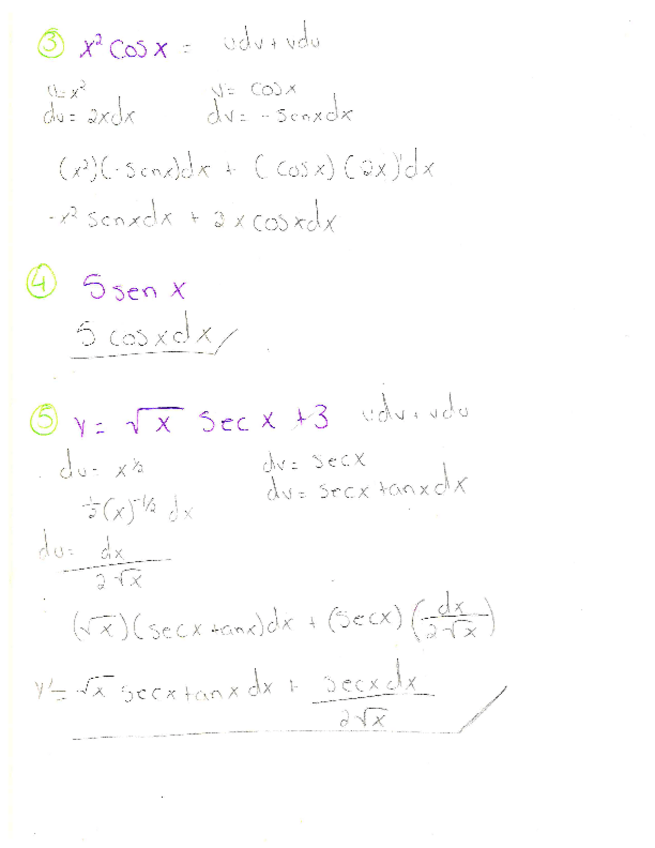 ③ x² cos x = udv + vdu
u = x² v = cos x
du = 2xdx dv = - senxdx
(x²)(-senx)dx + (cosx)(2x)dx
-x² senxdx + 2xcosxdx
④ 5 sen x
5 cosxdx
⑤ y = √x sec x + 3 udv + vdu
du = x^½ dv = secx
½(x)^-1/2 dx dv = secx tanxdx
du = dx/2√x
(√x)(secx tanx)dx + (secx)(dx/2√x)
y' = √x secx tanx dx + secxdx/2√x